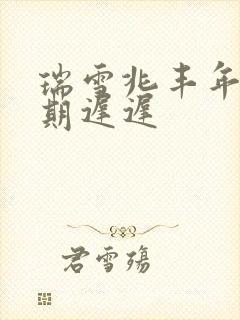 瑞雪兆丰年
期遲遲
君雪殤